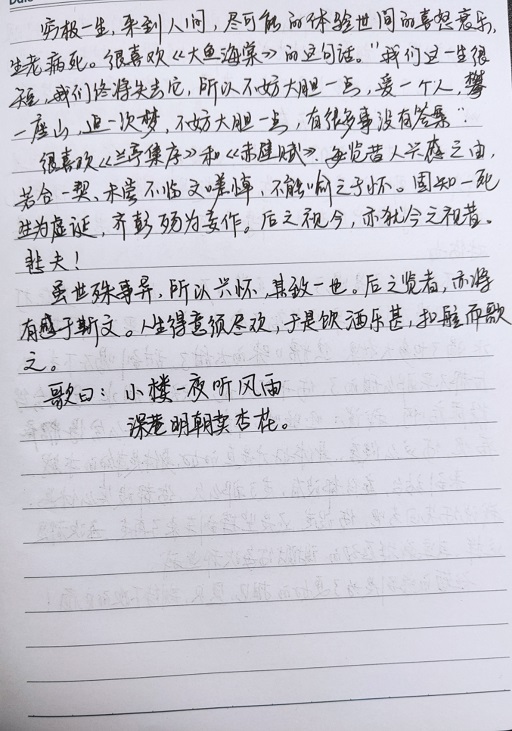 穷极一生，来到人间，尽可能的体验世间的喜怒哀乐，
生老病死。很喜欢《大鱼海棠》的这句话。"我们这一生很
短，我们终将失去它，所以不妨大胆一点，爱一个人，攀
一座山，追一次梦，不妨大胆一点，有很多事没有答案"。
很喜欢《兰亭集序》和《赤壁赋》。每览昔人兴感之由，
若合一契，未尝不临文嗟悼，不能喻之于怀。固知一死
生为虚诞，齐彭殇为妄作。后之视今，亦犹今之视昔。
悲夫！
虽世殊事异，所以兴怀，其致一也。后之览者，亦将
有感于斯文。人生得意须尽欢，于是饮酒乐甚，扣舷而歌
之。
歌曰：小楼一夜听风雨
深巷明朝卖杏花。